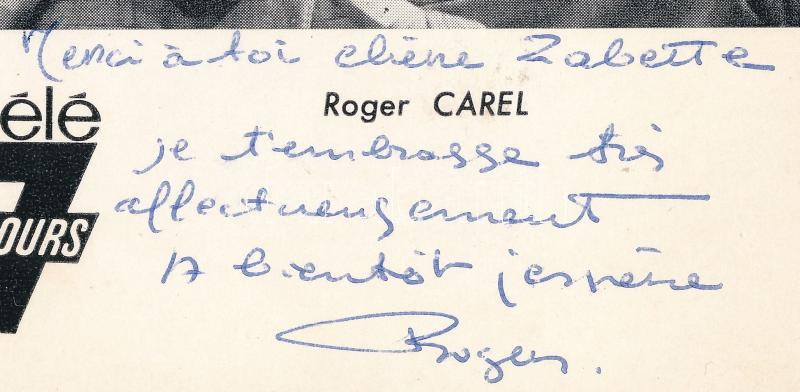 Merci à toi chère Zabette
Roger CAREL
élé
7
OURS
je t'embrasse très
affectueusement
A bientôt j'espère
Roger.